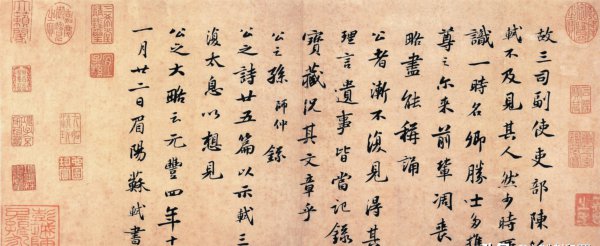 故三司副使吏部陳
軾不及見其人然少時
識一時名卿勝士多推
尊之尒來前輩凋喪
略盡能稱誦
公者漸不復見得其
理言遺事皆當記錄
寶藏況其文章乎
公之孫師仲錄
公之詩廿五篇以示軾三
復太息以想見
公之大略云元豐四年十
一月廿二日眉陽蘇軾書